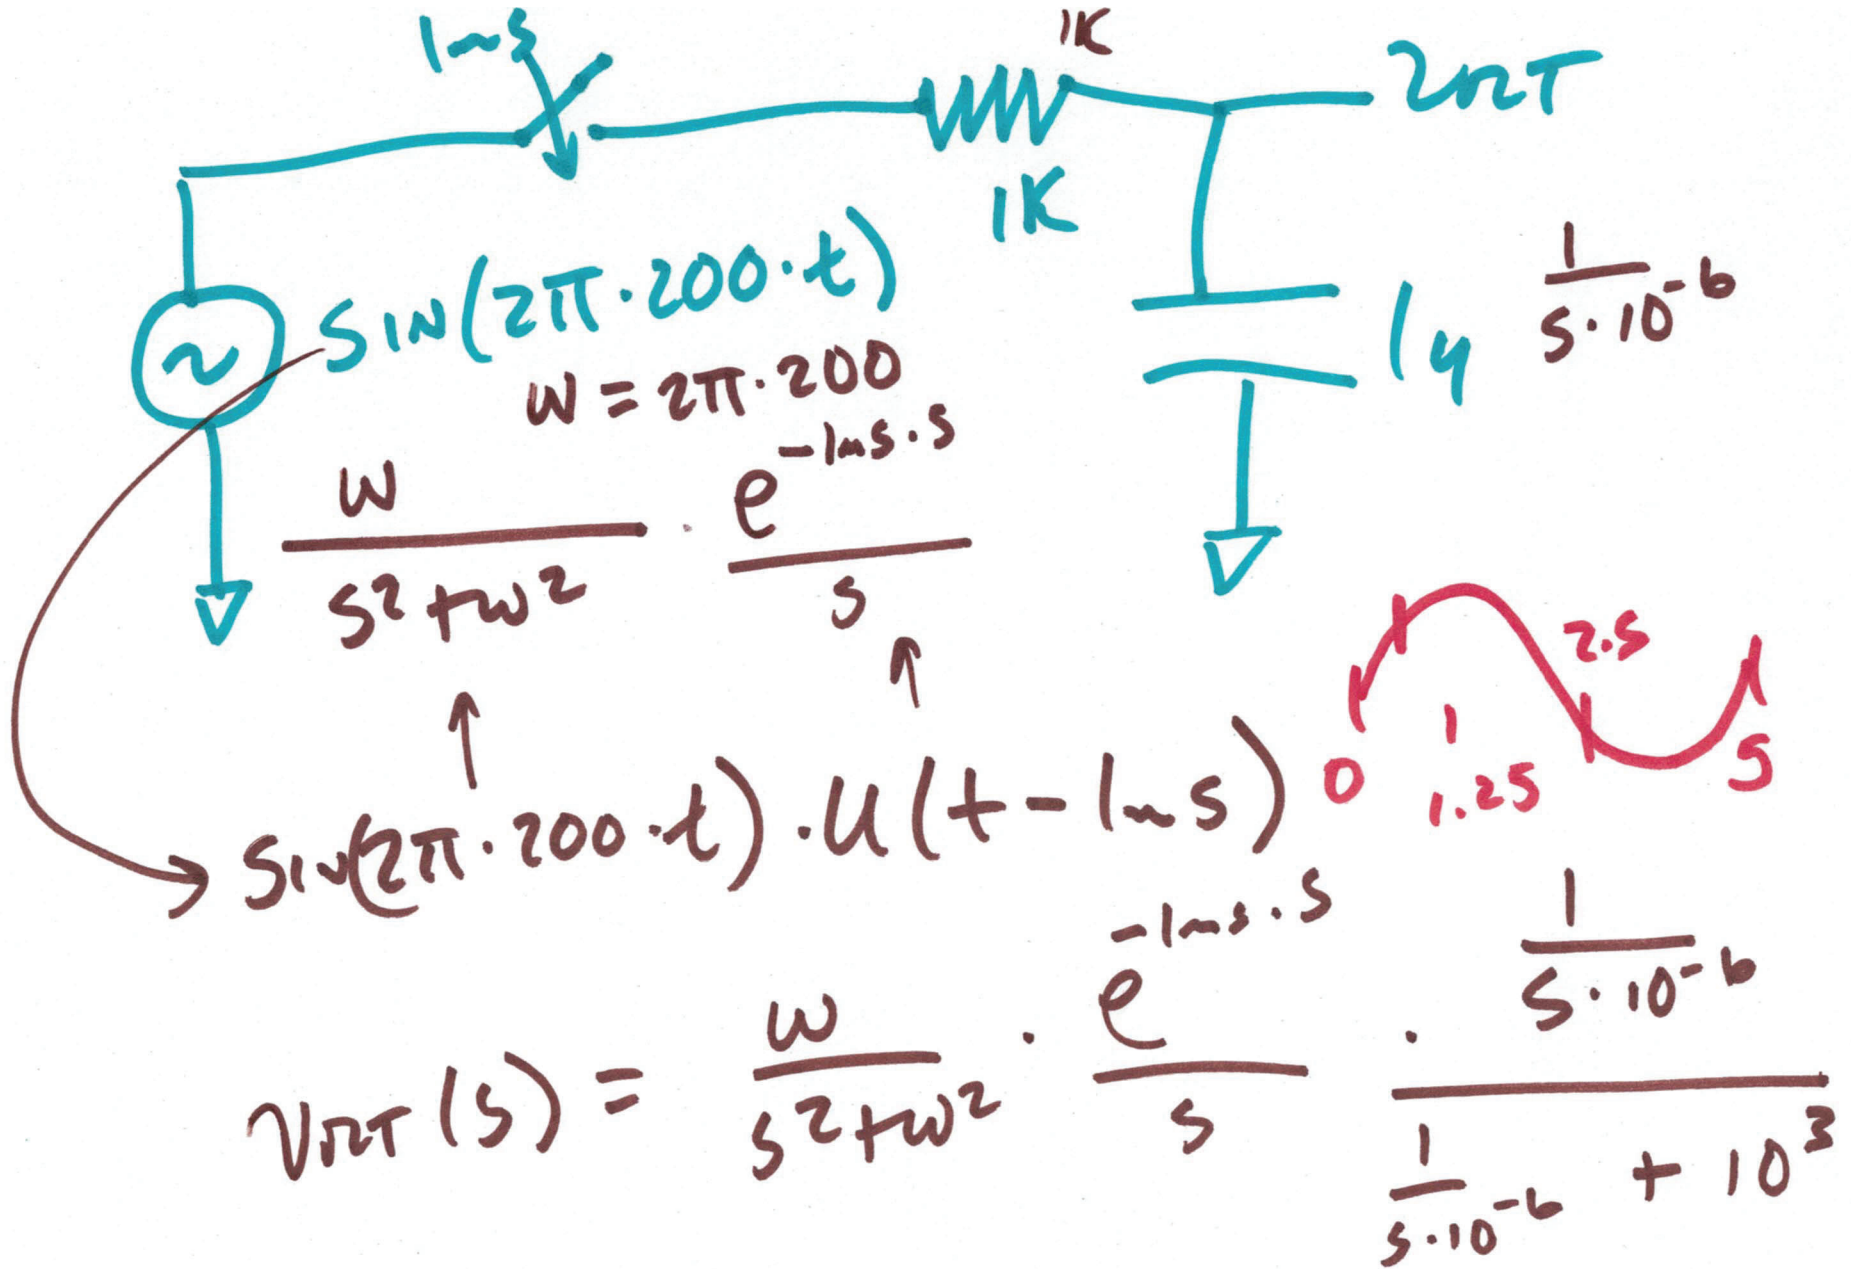 1ms
1K
VOUT
1K
SIN(2π·200·t)
1/(s·10^-6)
1µ
w = 2π·200
w/(s²+w²) · e^(-1ms·s)/s
2.5
0 1 5
1.25
SIN(2π·200·t)·u(t-1ms)
VOUT(s) = w/(s²+w²) · e^(-1ms·s)/s · (1/(s·10^-6))/(1/(s·10^-6) + 10³)